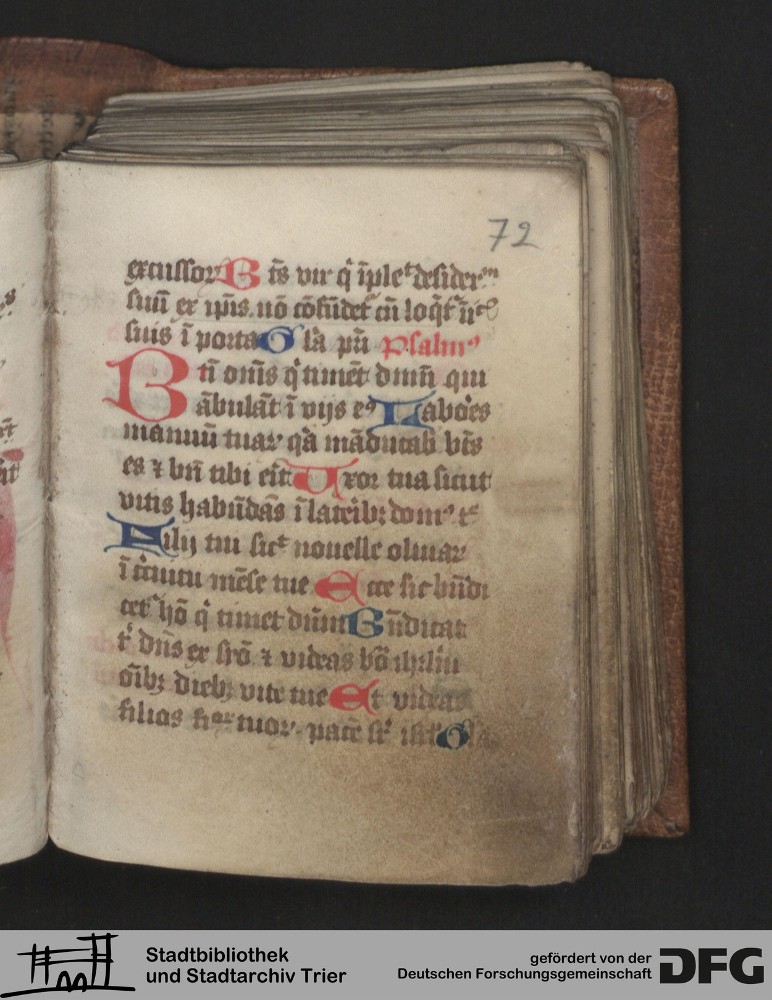 72
excussoꝝ B t̄s vir q̇ īpleᵗ desideꝛ
suū ex ip̄is. nō cōfūdet᷑ cū loq̄t᷑
suis ī porta Gl̓a pr̄i Psalmꝰ
Bti om̄s q̇ timēt dmn̄ qui
ābulāt ī vijs eꝰ Labōes
manuū tuaꝝ qͣ māducab
es ⁊ bn̄ tibi eīt Uxor tua sicut
vitis habūdās ī lateribꝫ domꝰ
Filij tui sicᵗ nouelle oliuaꝝ
ī mēse tue Ecce sic bn̄di
cet᷑ hō q̇ timet dūm Bn̄dicat
t dn̄s ex syō ⁊ videas bō ihrl̄m
oībꝫ diebꝫ vite tue Et videas
filios fi tuoꝝ. pacē sr̄ isrl̄
Stadtbibliothek
und Stadtarchiv Trier
gefördert von der
Deutschen Forschungsgemeinschaft
DFG